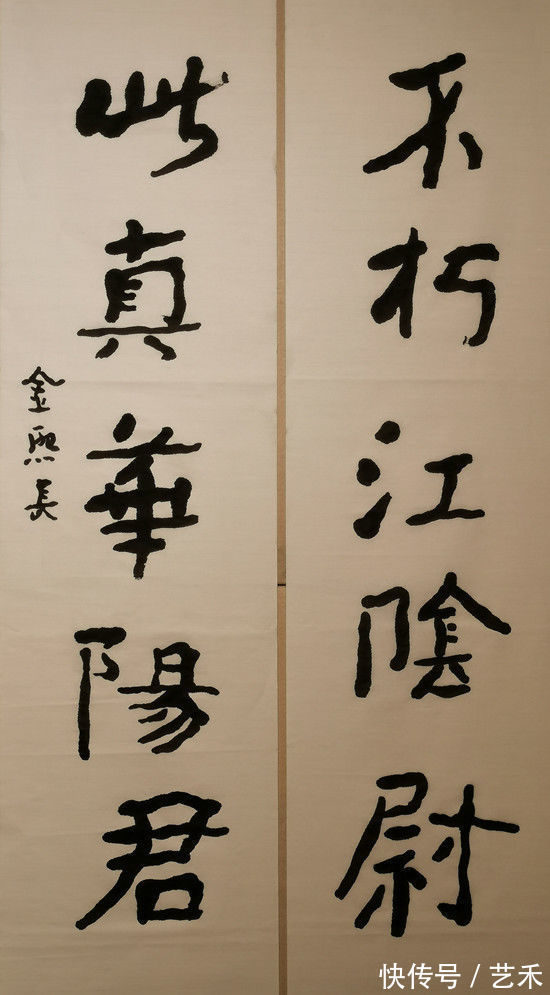 不朽江陰尉
此真華陽君
金熙長
快传号/艺禾